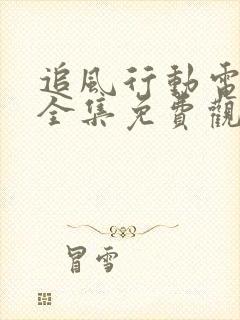 追風行動電
全集免費觀
冒雪